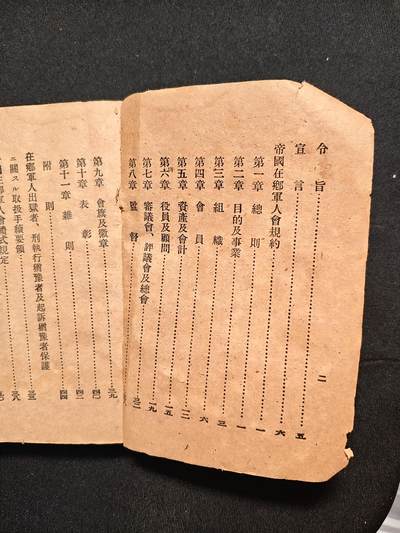 令旨……二
宣言……五
帝國在鄉軍人會規約……六
第一章 總則……一
第二章 目的及事業……一
第三章 組織……三
第四章 會員……六
第五章 資產及會計……一二
第六章 役員及顧問……一五
第七章 審議會、評議會及總會……一九
第八章 監督
第九章 會旗及徽章
第十章 表彰
第十一章 雜則
附則
在鄉軍人出獄者、刑執行猶豫者及起訴猶豫者保護
ニ關スル取扱手續要領